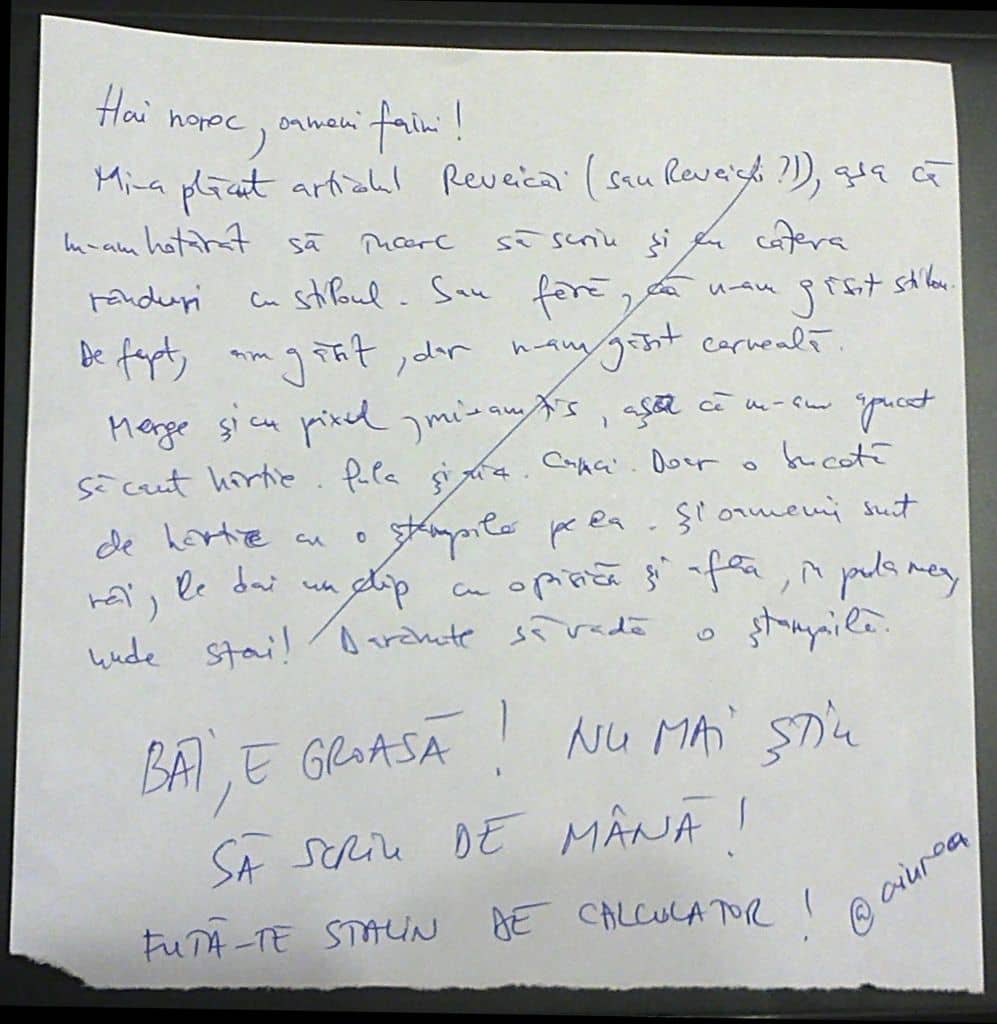 Hai noroc, oameni faini!
Mi-a plăcut articolul Reveicăi (sau Reveicii?!)), așa că
m-am hotărât să încerc să scriu și eu câteva
rânduri cu stiloul. Sau fără, că n-am găsit stilou.
De fapt, am găsit, dar n-am găsit cerneală.
Merge și cu pixul, mi-am zis, așa că m-am apucat
să caut hârtie. Pula și aia. Canci. Doar o bucată
de hârtie cu o ștampilă pe ea. Și oamenii sunt
răi, le dai un clip cu o pisică și află, în pula mea,
unde stai! Darămite să vadă o ștampilă.
BĂI, E GROASĂ! NU MAI ȘTIU
SĂ SCRIU DE MÂNĂ!
FUTĂ-TE STALIN DE CALCULATOR! @aiurea